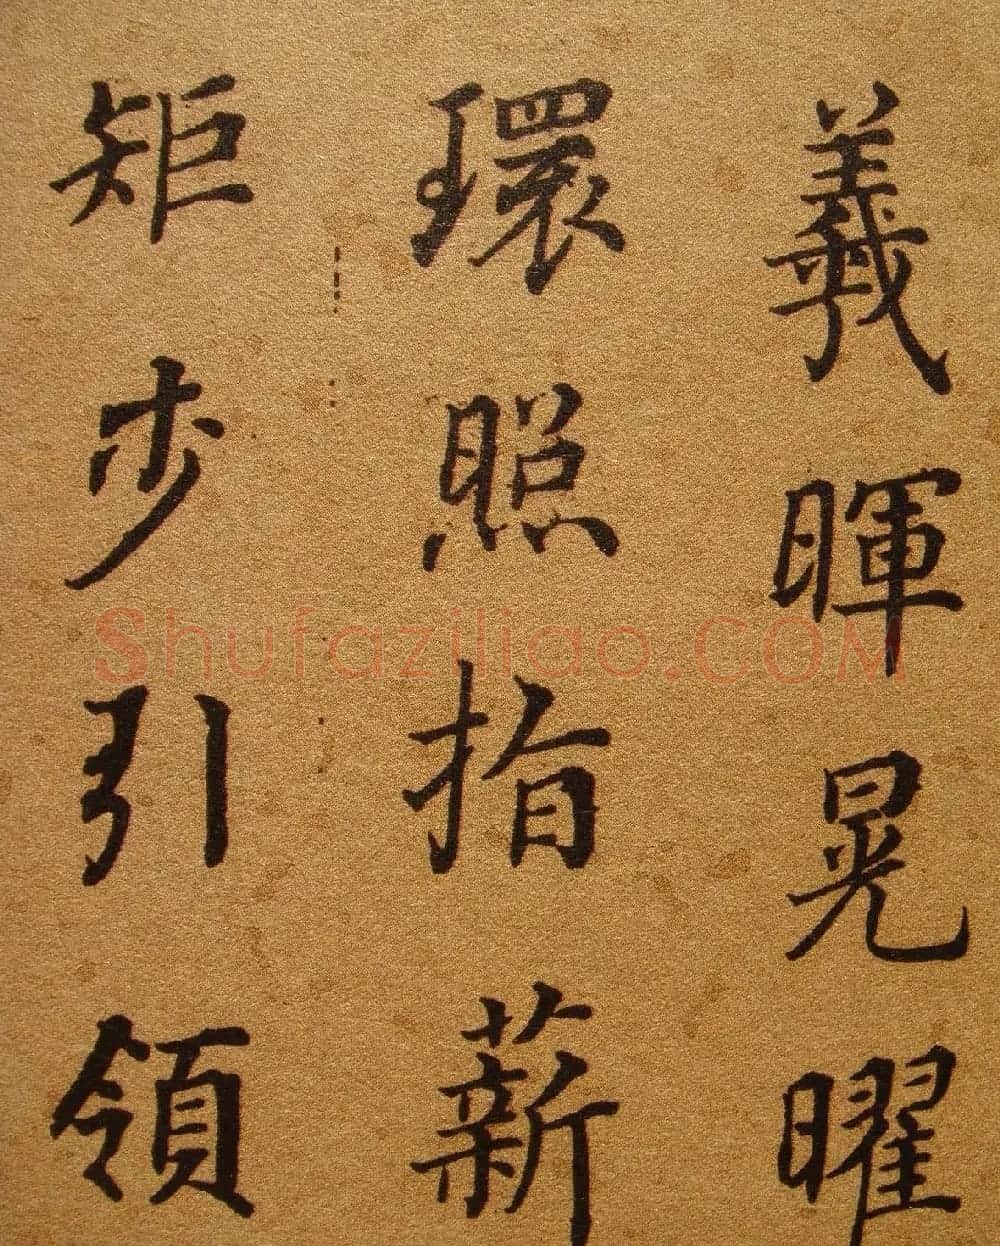 羲暉晃曜
環照指薪
矩步引領
Shufaziliao.COM